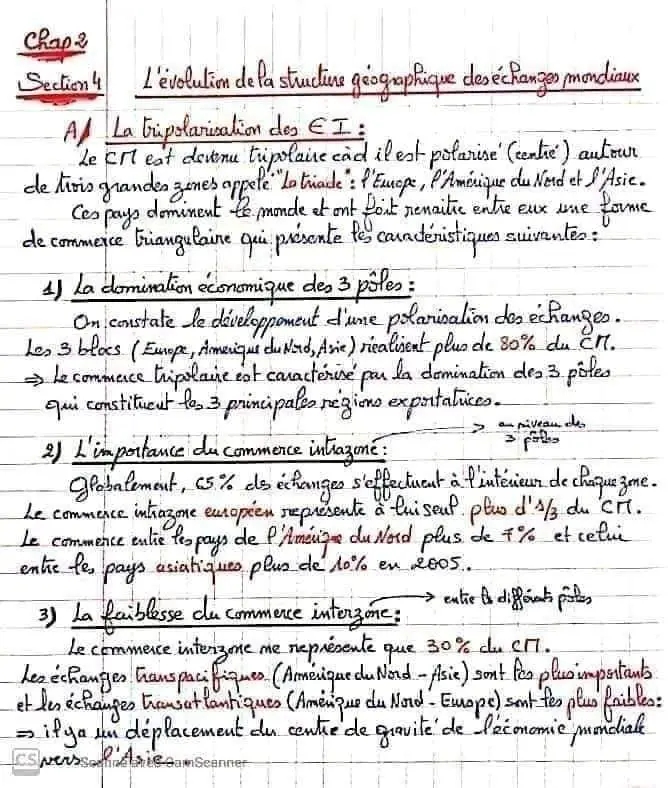 Chap 2
Section 4 L'évolution de la structure géographique des échanges mondiaux
A/ La tripolarisation des EI :
Le CM est devenu tripolaire càd il est polarisé (centré) autour
de trois grandes zones appelé "La triade" : l'Europe, l'Amérique du Nord et l'Asie.
Ces pays dominent le monde et ont fait renaitre entre eux une forme
de commerce triangulaire qui présente les caractéristiques suivantes :
1) La domination économique des 3 pôles :
On constate le développement d'une polarisation des échanges.
Les 3 blocs (Europe, Amérique du Nord, Asie) réalisent plus de 80% du CM.
⇒ Le commerce tripolaire est caractérisé par la domination des 3 pôles
qui constituent les 3 principales régions exportatrices.
2) L'importance du commerce intrazone : → au niveau des
3 pôles
Globalement, 65% des échanges s'effectuent à l'intérieur de chaque zone.
Le commerce intrazone européen représente à lui seul plus d'1/3 du CM.
Le commerce entre les pays de l'Amérique du Nord plus de 7% et celui
entre les pays asiatiques plus de 10% en 2005.
3) La faiblesse du commerce interzone : → entre les différents pôles
Le commerce interzone ne représente que 30% du CM.
Les échanges transpacifiques (Amérique du Nord - Asie) sont les plus importants
et les échanges transatlantiques (Amérique du Nord - Europe) sont les plus faibles :
⇒ il y a un déplacement du centre de gravité de l'économie mondiale
vers l'Asie.
CS Scanné avec CamScanner